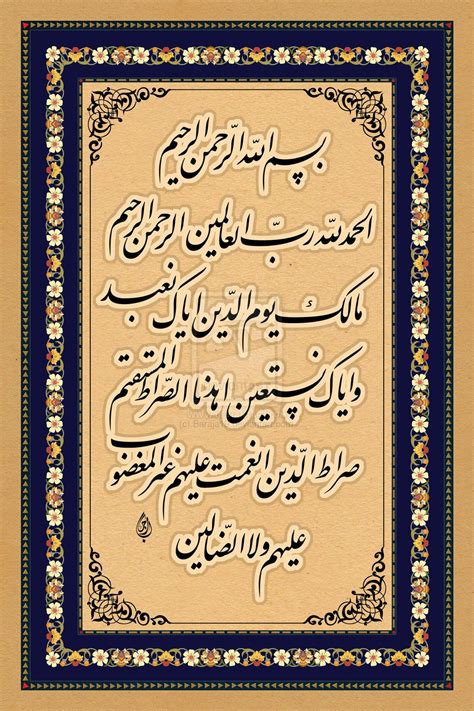 بسم الله الرّحمن الرحیم
الحمد لله ربّ العالمین الرحمن الرحیم
مالک یوم الدّین ایاک نعبد
وایاک نستعین اهدنا الصّراط المستقیم
صراط الّذین انعمت علیهم غیر المغضوب
علیهم ولا الضّالّین